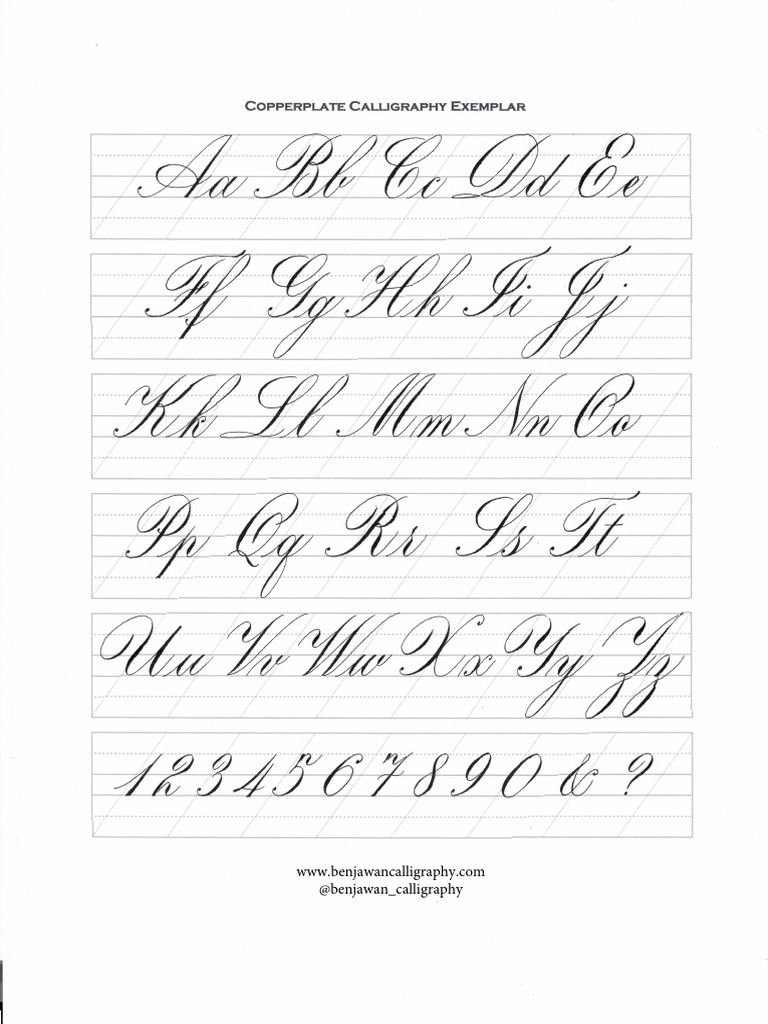 Copperplate Calligraphy Exemplar
Aa Bb Cc Dd Ee
Ff Gg Hh Ii Jj
Kk Ll Mm Nn Oo
Pp Qq Rr Ss Tt
Uu Vv Ww Xx Yy Zz
1 2 3 4 5 6 7 8 9 0 & ?
www.benjawancalligraphy.com
@benjawan_calligraphy